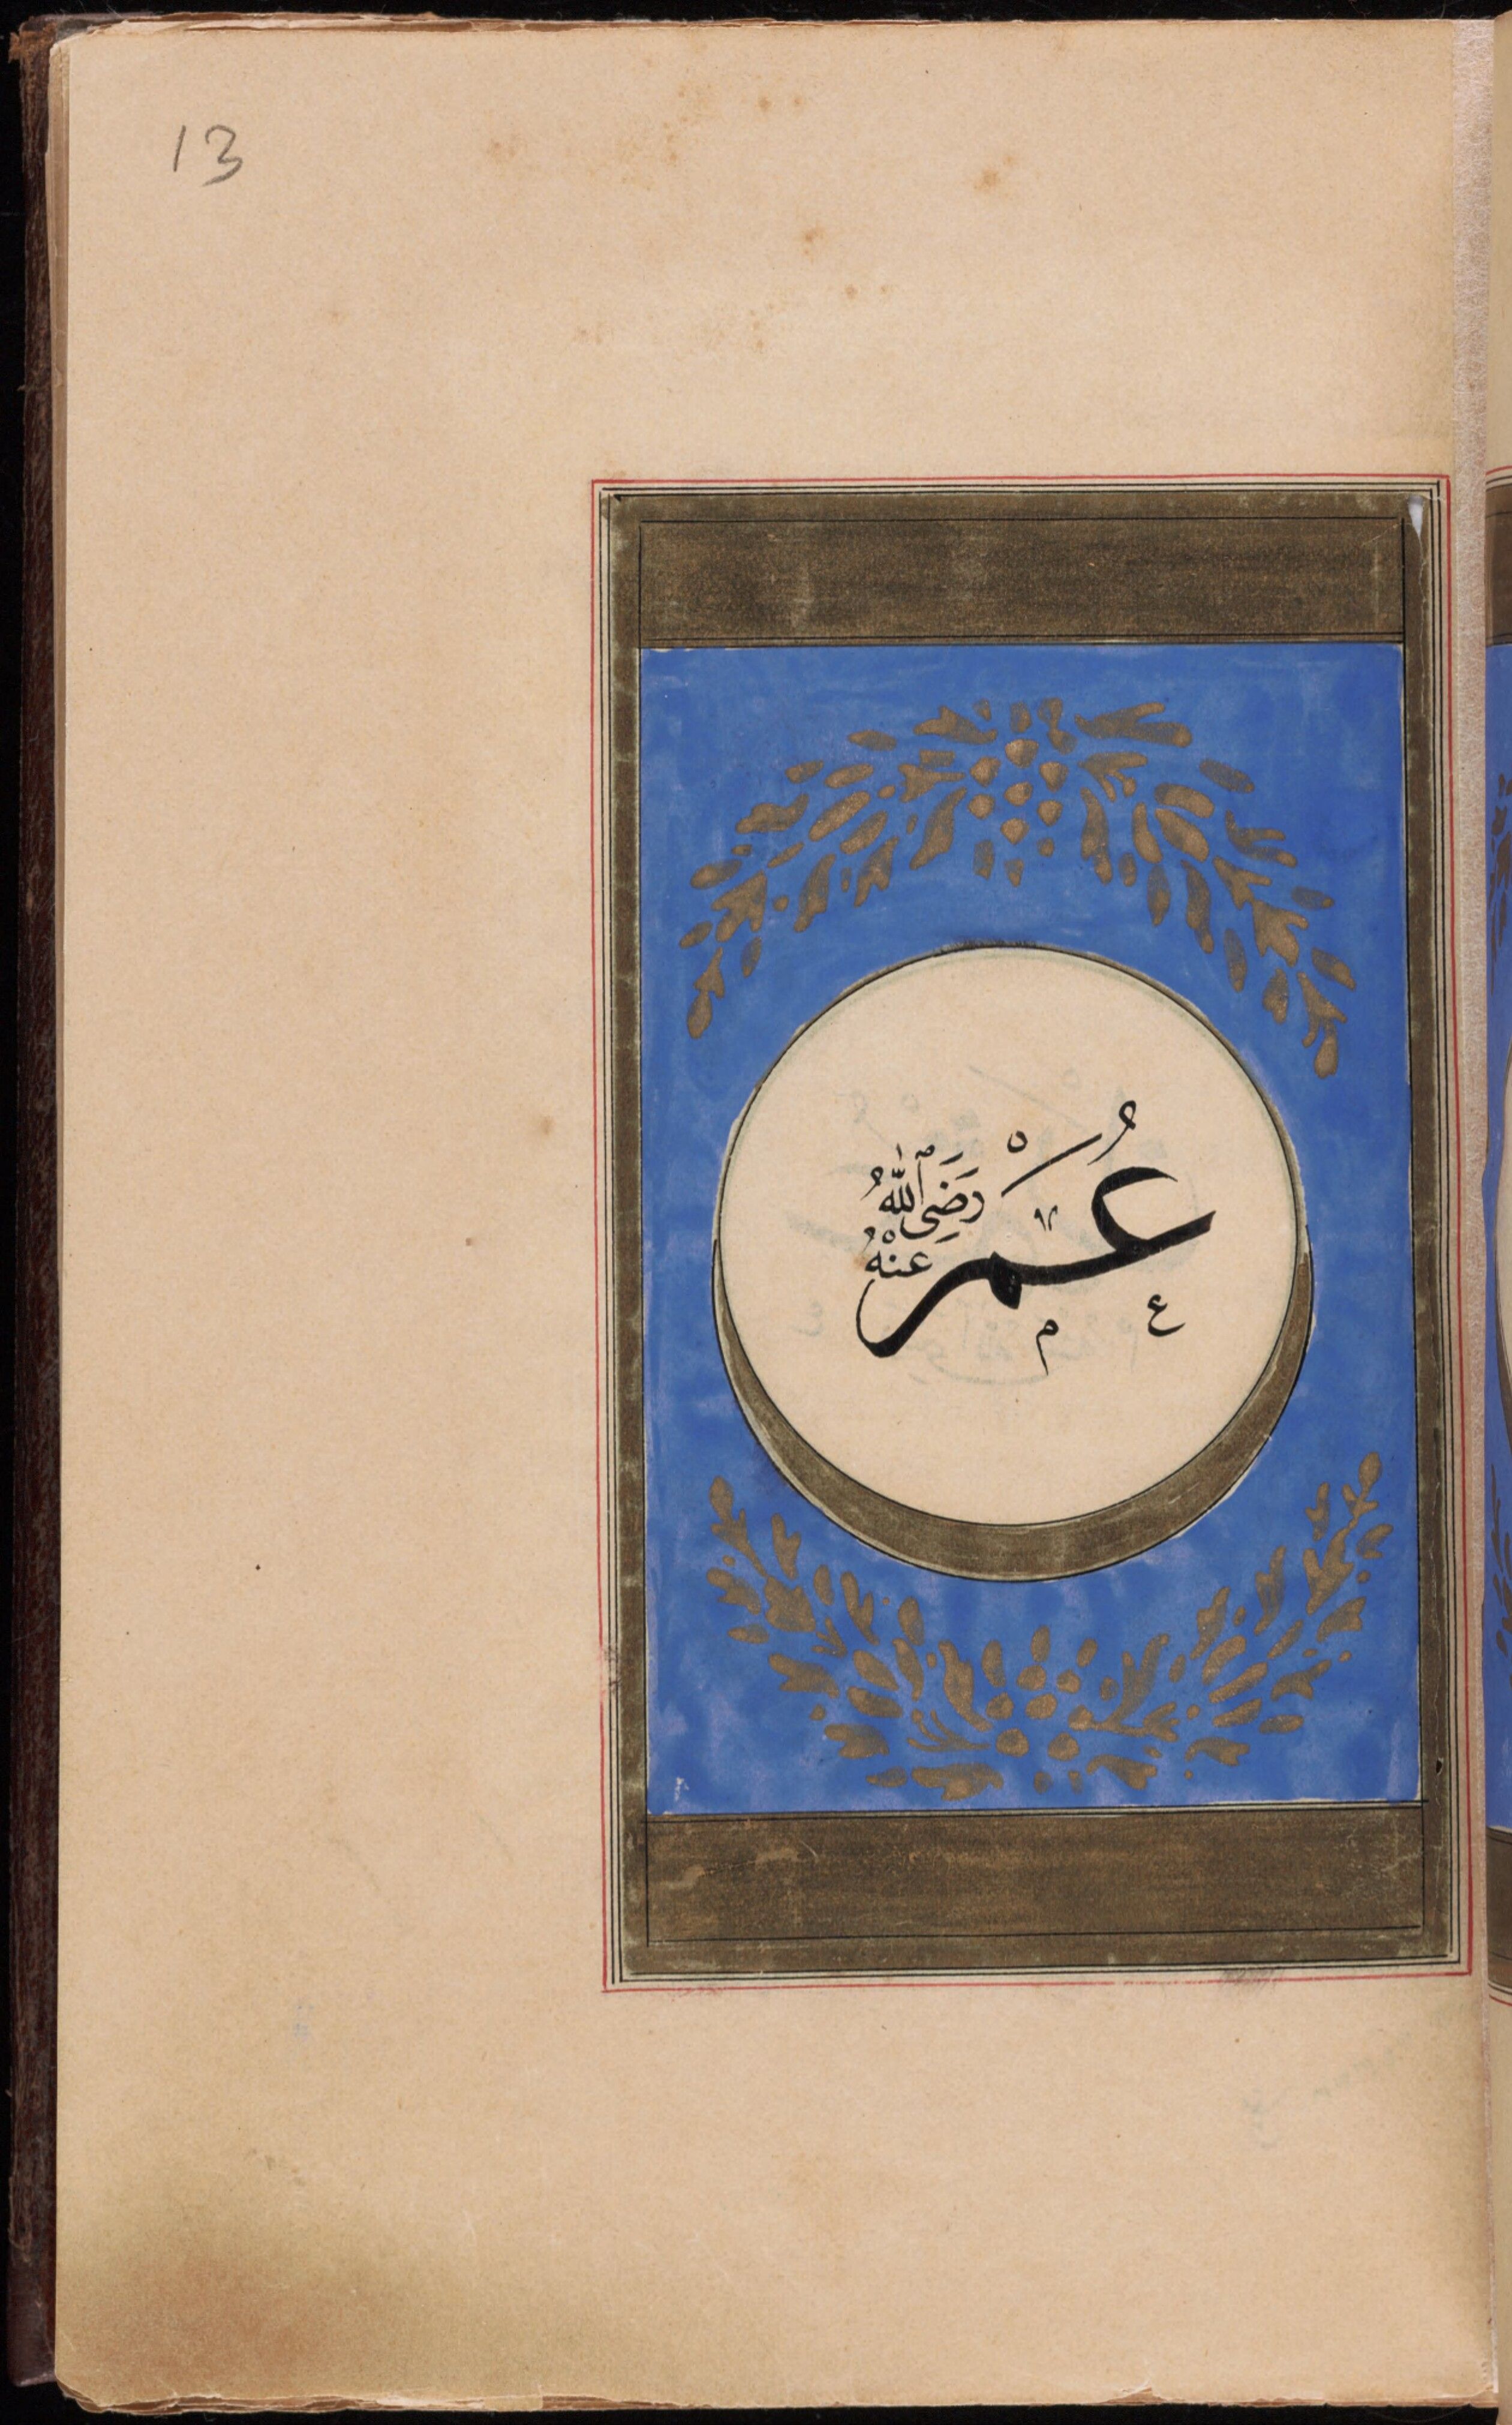 13
عُمَر رَضِيَ ٱللّٰهُ
عَنْهُ
م ع